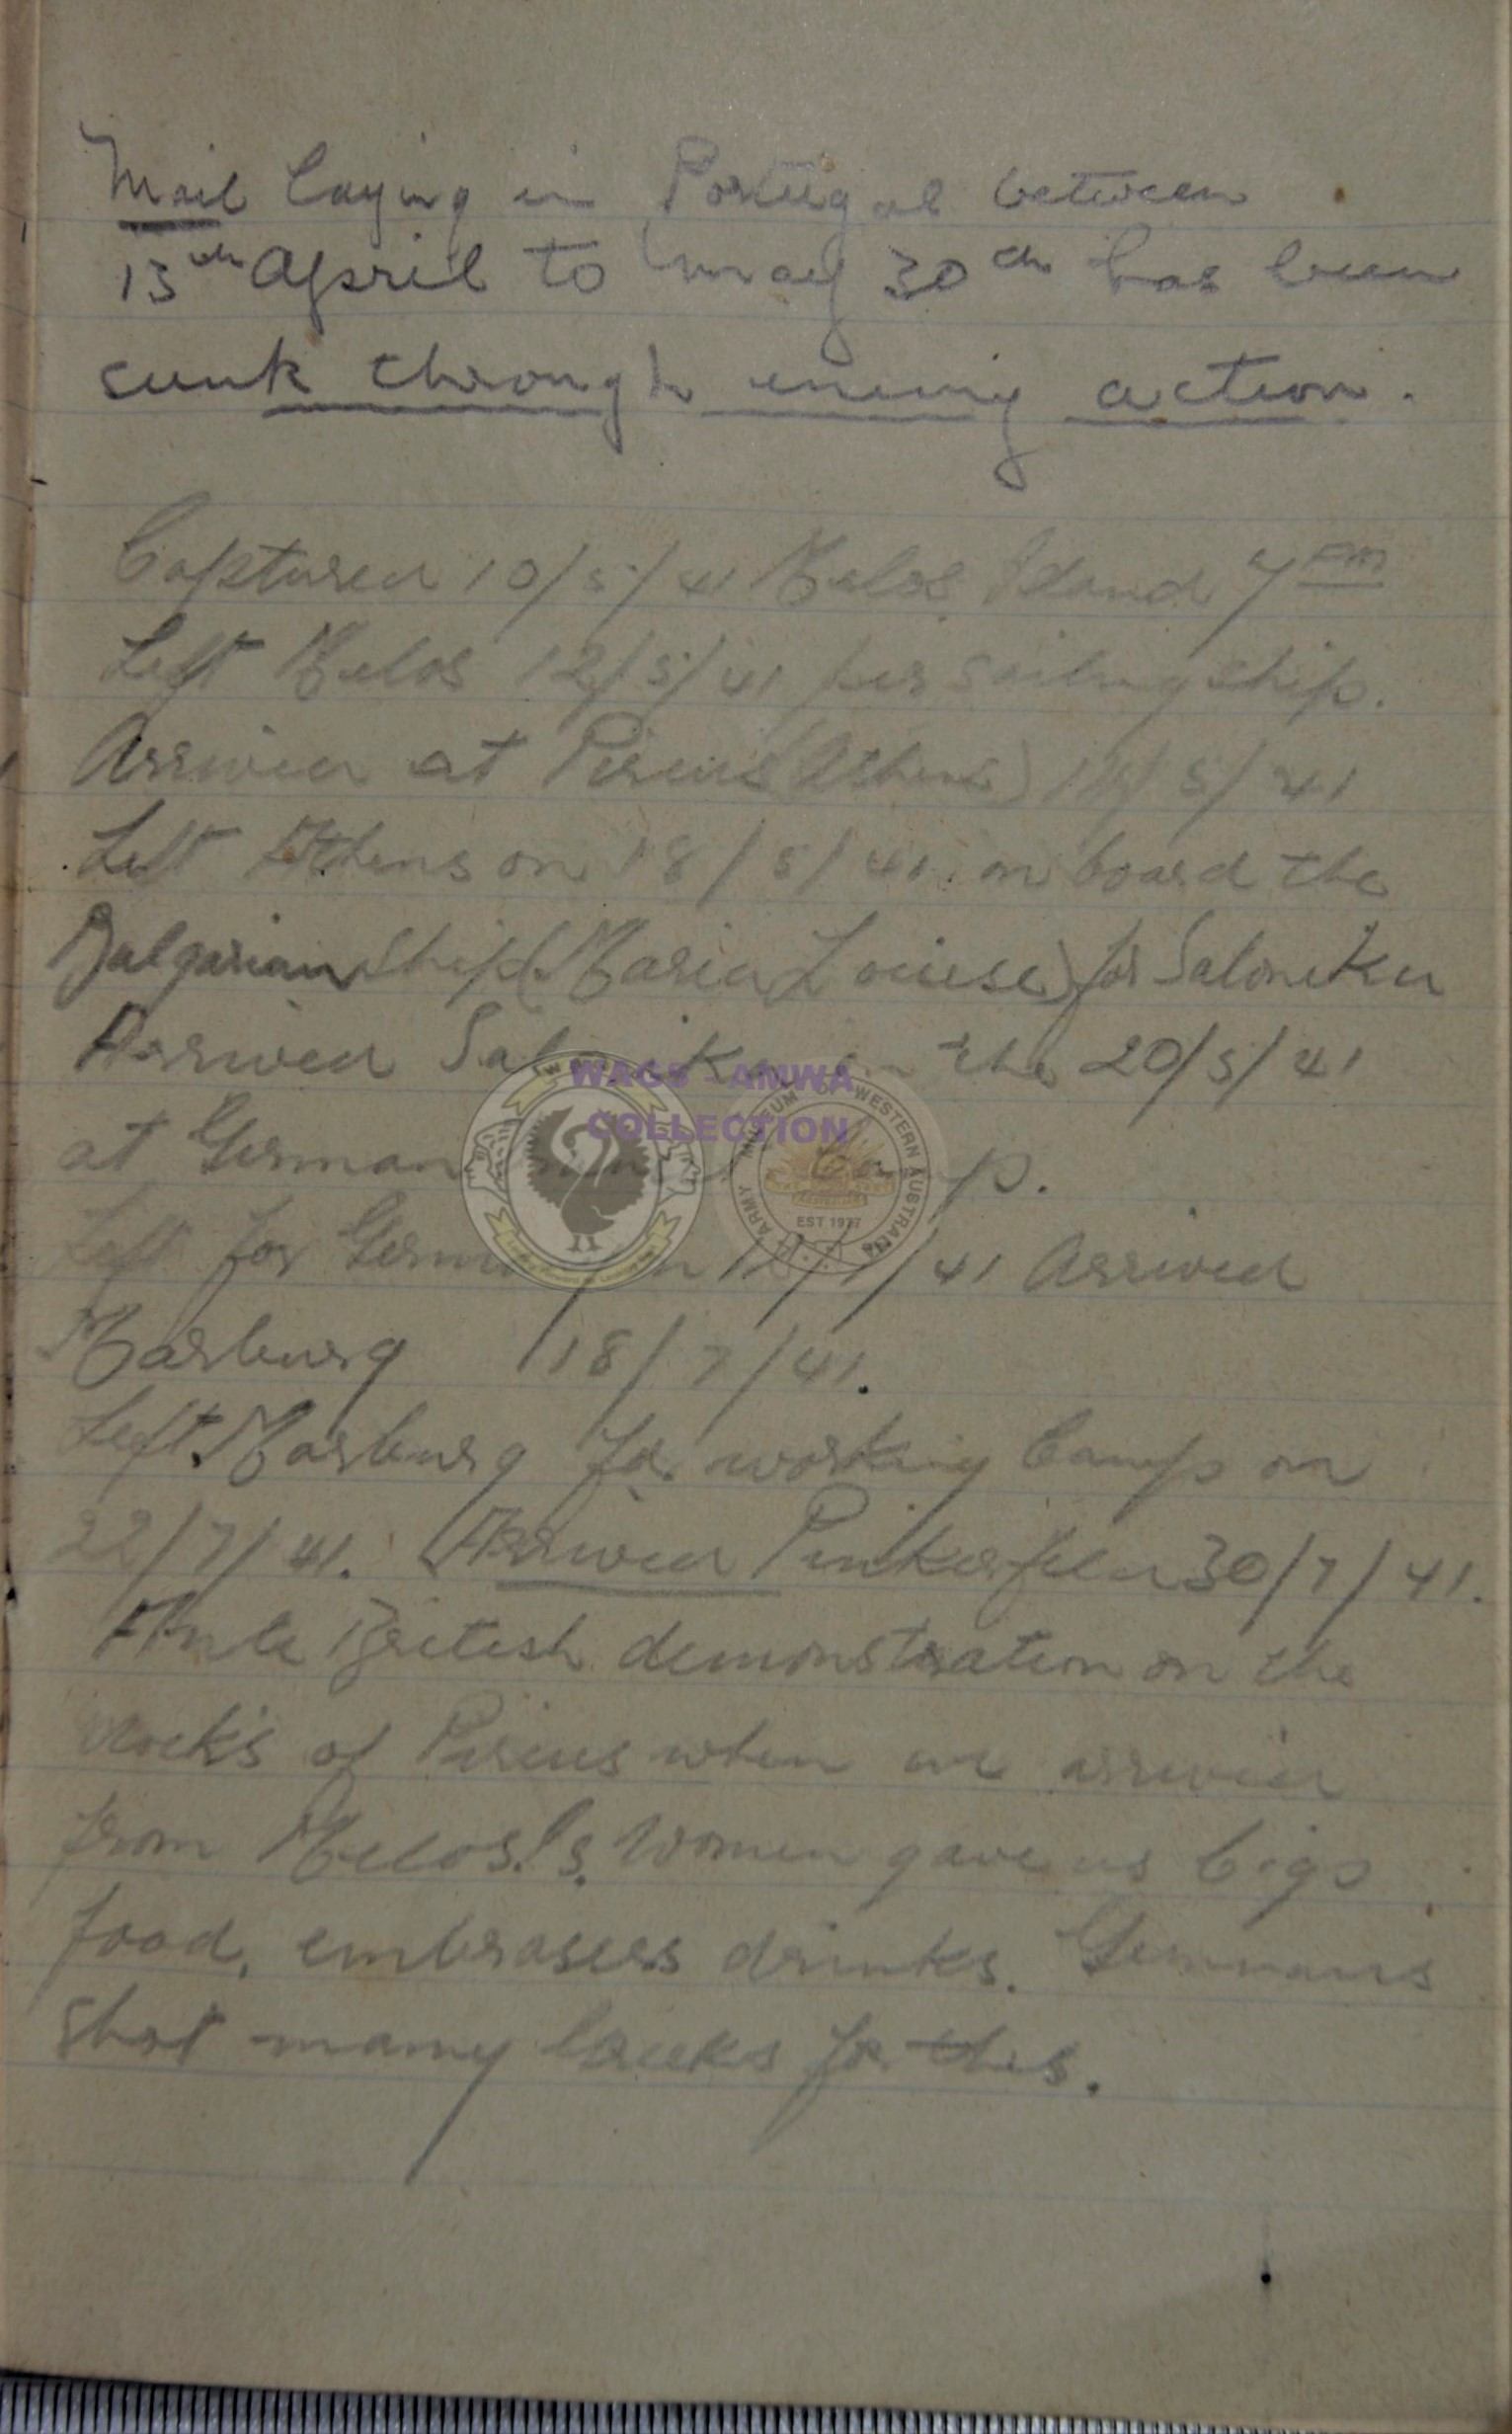 Mail laying in Portugal between
13th April to May 30th has been
sunk through enemy action.
Captured 10/5/41 Melos Island 7 PM
Left Melos 12/5/41 per sailing ship.
Arrived at Pireus (Athens) /5/41
Left Athens on 18/5/41 on board the
Bulgarian Ship (Maria Louise) for Salonika
Arrived the 20/5/41
at German p.
Left for /7/41 Arrived
Marburg 18/7/41.
Left Marburg for working Camp on
22/7/41. Arrived Pinkafeld 30/7/41.
British demonstration on the
docks of Pireus when we arrived
from Melos. Is. Women gave us Cigs
food, embrasers drinks. Germans
shot many Greeks for this.
WAGS - AMWA
COLLECTION
ARMY MUSEUM OF WESTERN AUSTRALIA
EST 1977